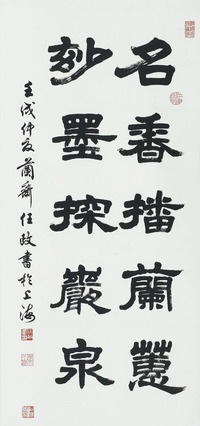 名香播蘭蕙
妙墨探巖泉
壬戌仲夏蘭齋任政書於上海